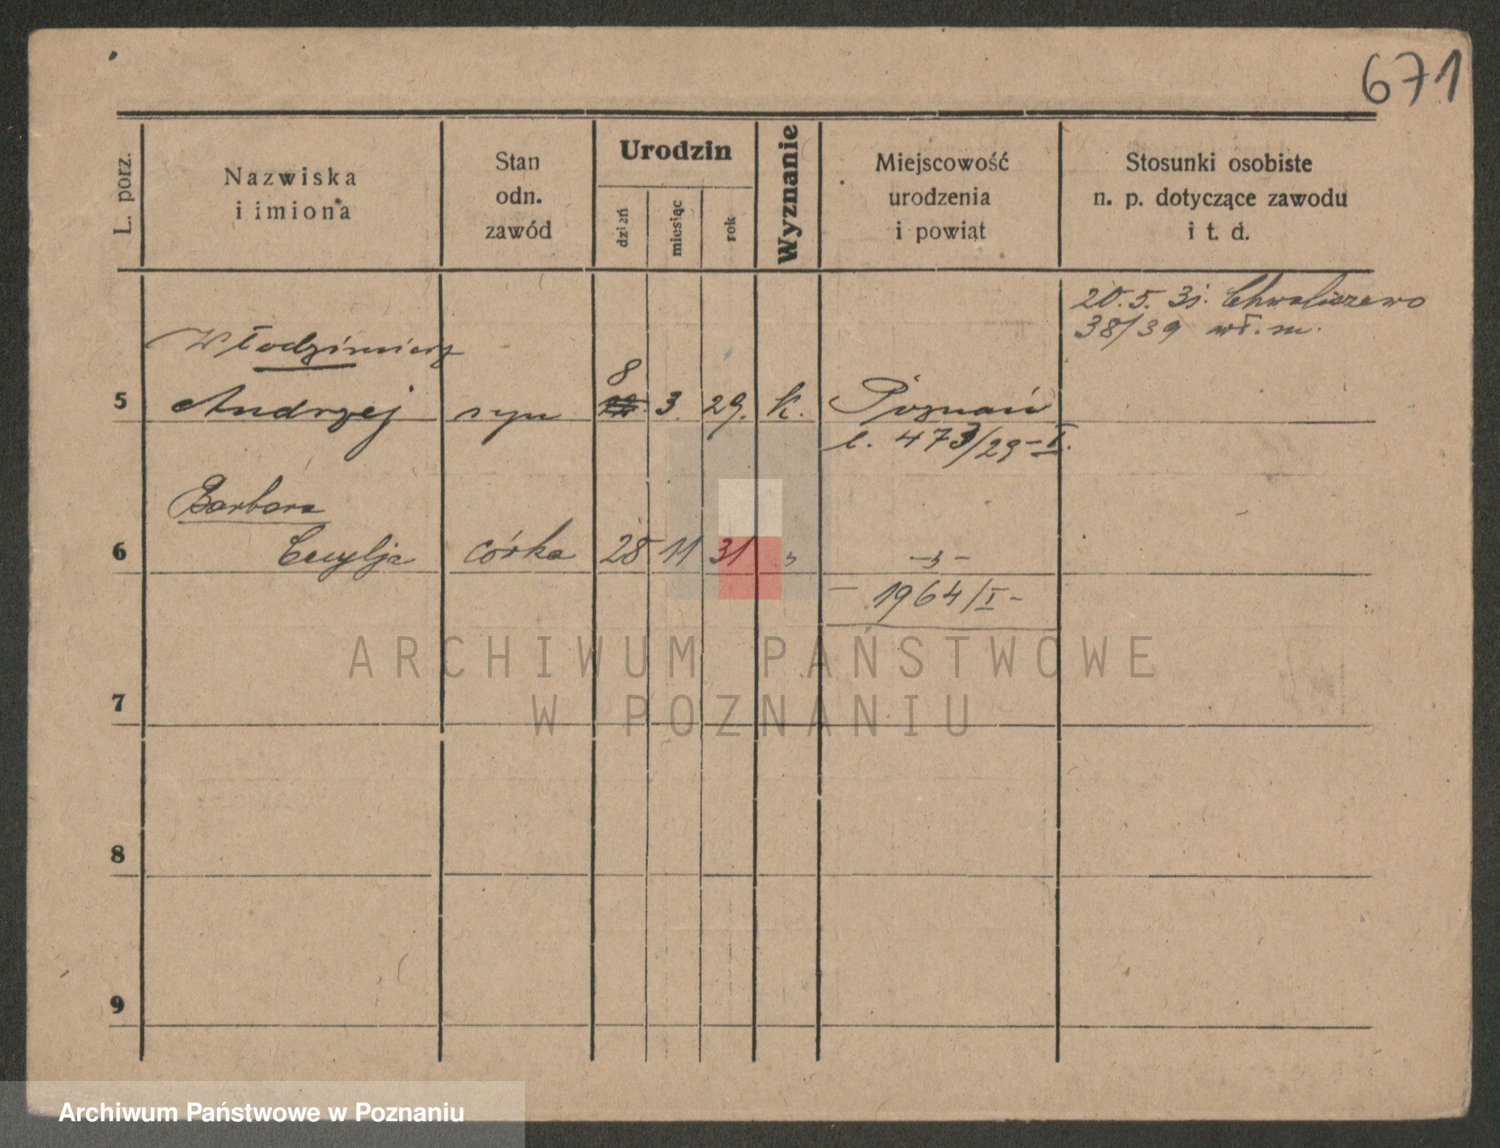 671
L. porz.
Nazwiska
i imiona
Stan
odn.
zawód
Urodzin
dzień
miesiąc
rok
Wyznanie
Miejscowość
urodzenia
i powiat
Stosunki osobiste
n. p. dotyczące zawodu
i t. d.
20.5.31. Chwaliszewo
38/39 wł. m.
Włodzimierz
8
5 Andrzej syn 3. 29. k. Poznań
l. 473/29-I.
Barbara
6 Cecylja córka 28 11 31 " -"-
- 1964/I -
ARCHIWUM PAŃSTWOWE
W POZNANIU
7
8
9
Archiwum Państwowe w Poznaniu